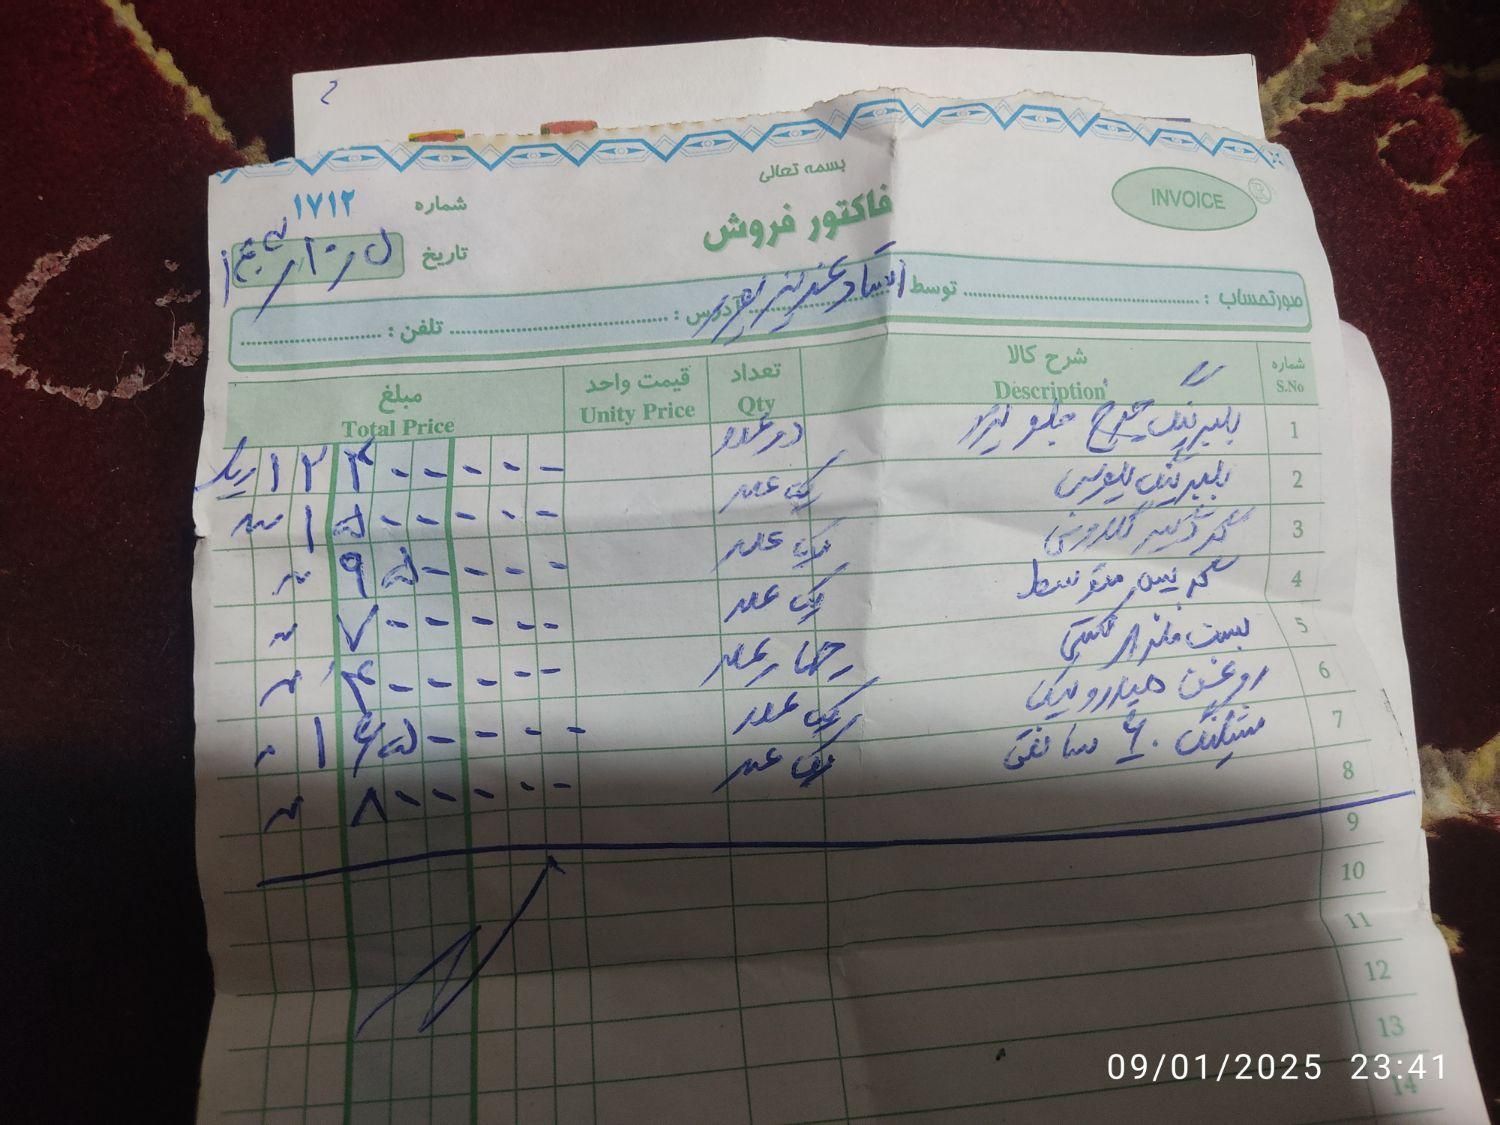 بسمه تعالی
INVOICE
فاکتور فروش
شماره ۱۷۱۲
تاریخ
صورتحساب : توسط استاد
آدرس : تلفن :
شماره شرح کالا تعداد قیمت واحد مبلغ
S.No Description Qty Unity Price Total Price
1 بلبرینگ چرخ جلو دو عدد ۱۲۴----- ریال
2 بلبرینگ یک عدد ۱۵------ "
3 یک عدد ۹۵----- "
4 متوسط یک عدد ۷------ "
5 بست چهار عدد ۴------ "
6 روغن هیدرولیک یک عدد ۱۶۵----- "
7 شیلنگ ۶۰ سانتی یک عدد ۸------ "
8
9
10
11
12
13
14
09/01/2025 23:41